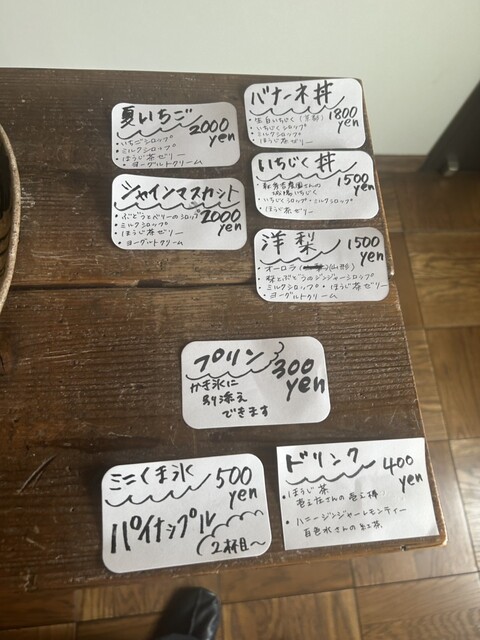 夏いちご
2000
yen
・いちごシロップ
・ミルクシロップ
・ほうじ茶ゼリー
・ヨーグルトクリーム
バナーネ丼
1800
yen
・いちじくシロップ
・ミルクシロップ
・ほうじ茶ゼリー
シャインマスカット
2000
yen
・ぶどうとベリーのシロップ
・ミルクシロップ
・ほうじ茶ゼリー
・ヨーグルトクリーム
いちじく丼
1500
yen
・いちじくシロップ・ミルクシロップ
・ほうじ茶ゼリー
洋梨
1500
yen
・オーロラ
・梨とぶどうのジンジャーシロップ
・ミルクシロップ・ほうじ茶ゼリー
・ヨーグルトクリーム
プリン
300
yen
かき氷に
別添え
できます
ミニくま氷
500
yen
パイナップル
(2杯目〜
ドリンク
400
yen
・ほうじ茶
・ハニージンジャーレモンティー
百色水さんの紅茶